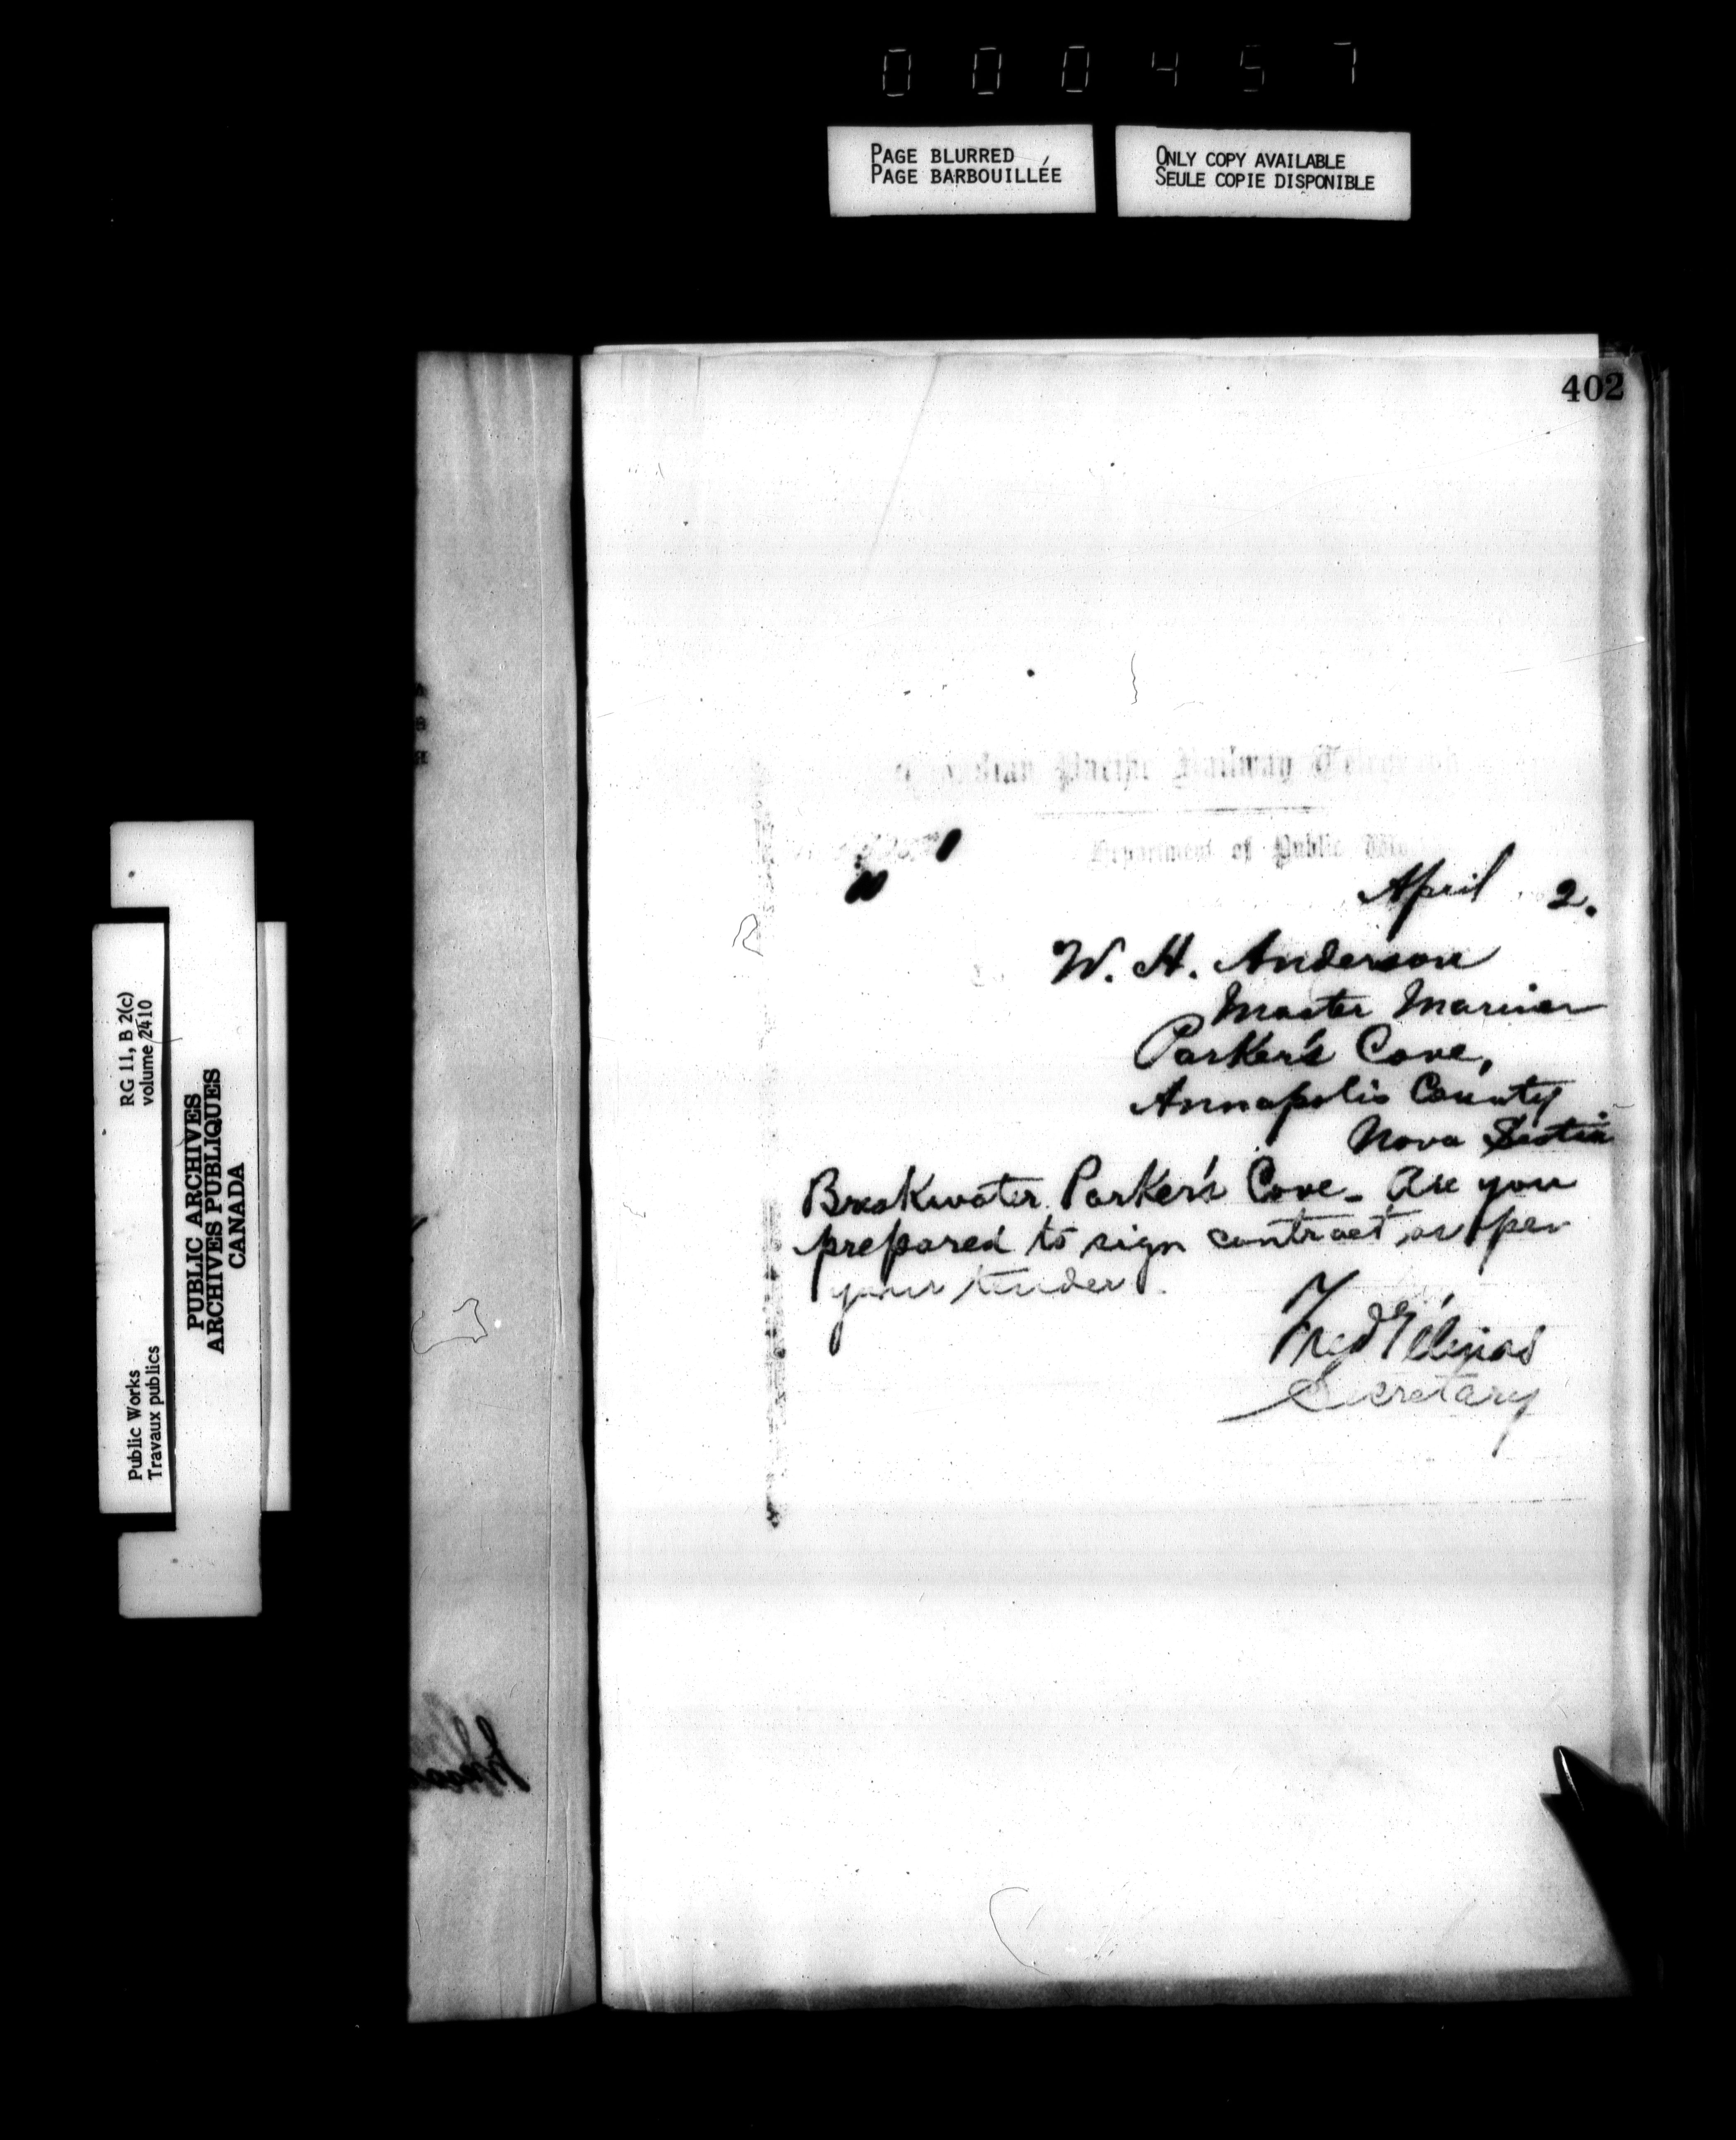 000457
PAGE BLURRED
PAGE BARBOUILLÉE
ONLY COPY AVAILABLE
SEULE COPIE DISPONIBLE
402
Canadian Pacific Railway Telegraph
Department of Public
April 2.
W. H. Anderson
Master Mariner
Parker's Cove,
Annapolis County
Nova Scotia
Breakwater Parker's Cove - Are you
prepared to sign contract as per
your tender.
Fred Gélinas
Secretary
RG 11, B 2(c)
volume 2410
Public Works
Travaux publics
PUBLIC ARCHIVES
ARCHIVES PUBLIQUES
CANADA